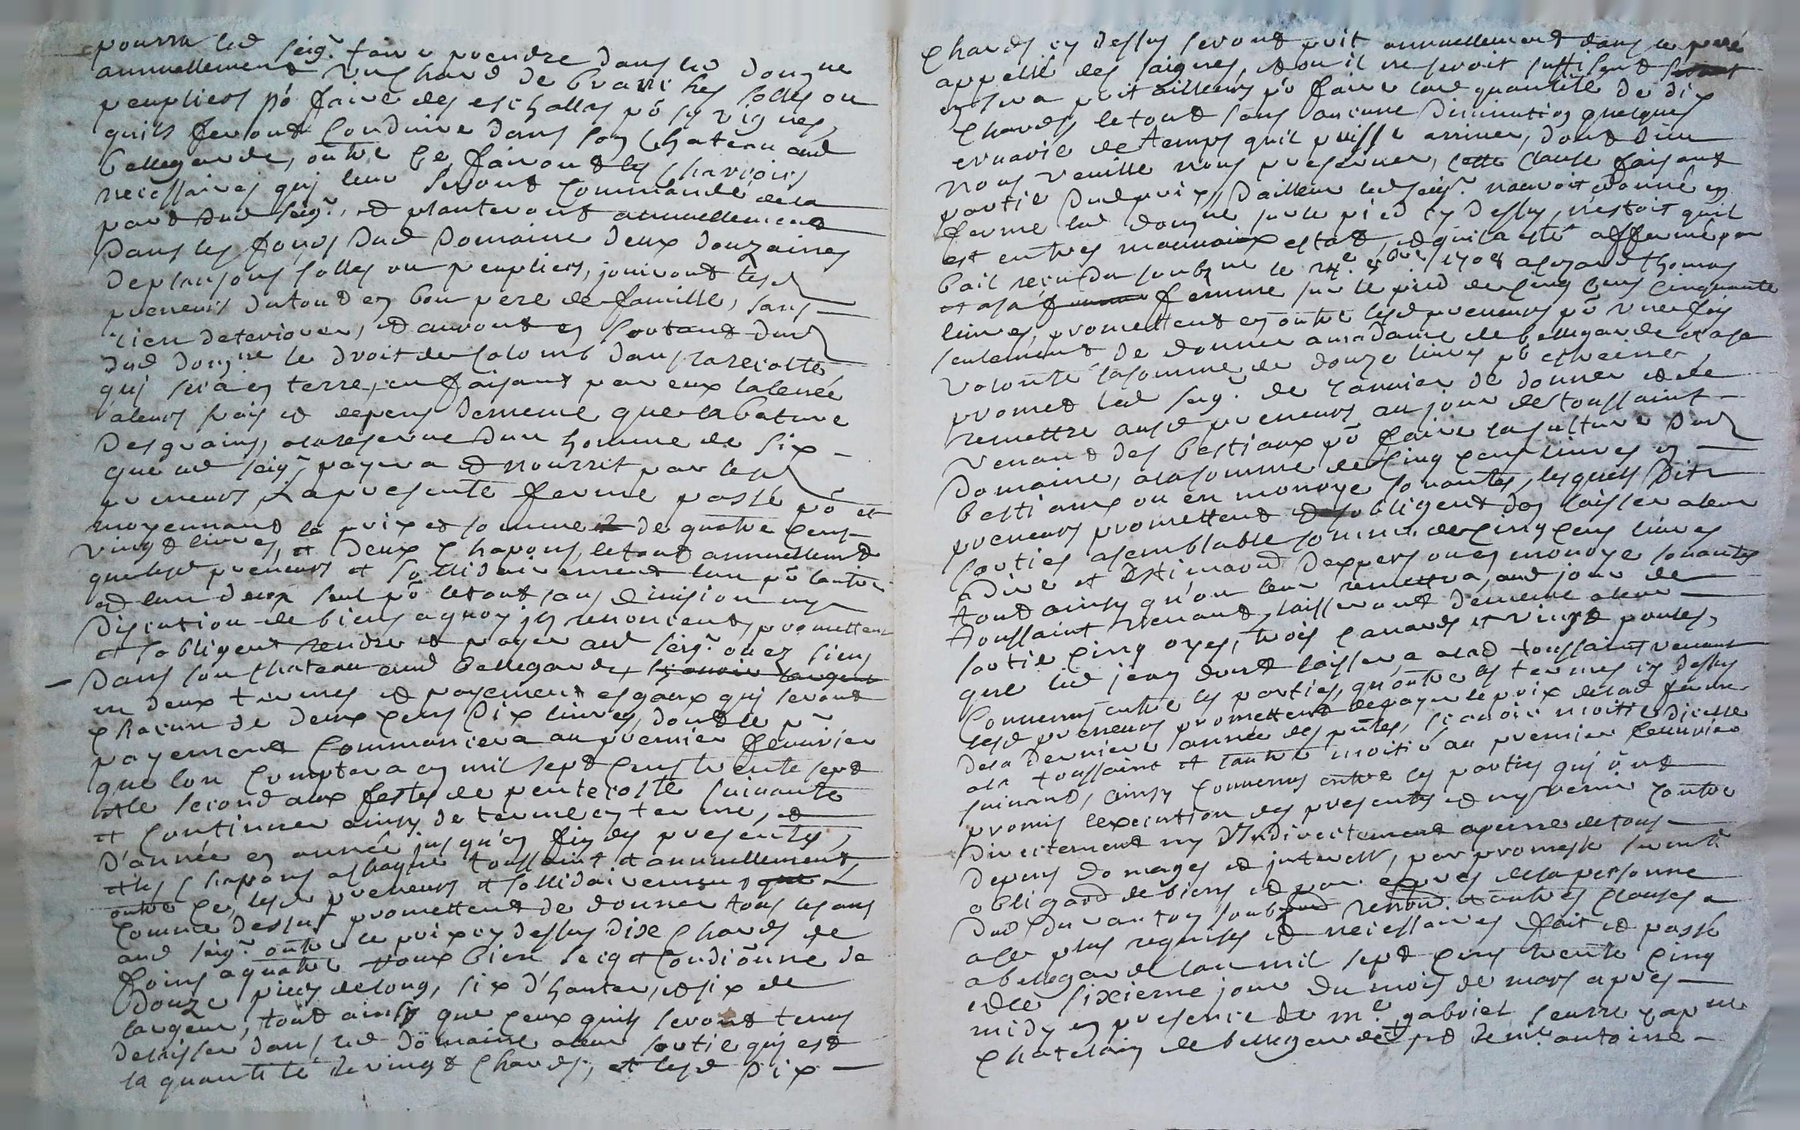 pourra led seigr faire prendre dans led domne
annuellement un chard de branches solles ou
peupliers pō faire des eschallas pō sy vignes,
quils feront conduire dans son chateau aud
bellegarde, outre ce fairont les charrois
necessaires quj leur seront commandé de la
part dud seigr, et planteront annuellement
dans les fonds dud domaine deux douzaines
de plansons solles ou peupliers, jouiront lesd
preneurs du tout en bon pere de famille, sans
rien deteriorer, et auront en sortant dud
dud domne le droit de colomb dans la recolte
quj sera en terre, en faisant par eux la levée
a leurs frais et depens de meme que la bature
des grains, a la reserve d'un homme de six
que led seigr payera et nourrit par lesd
preneurs, la presente ferme passé pō et
moyennant le prix et somme de quatre cens
vingt livres, et deux chapons, le tout annuellemt
que lesd preneurs et sollidairement l'un pō l'autre
et l'un deux seul pō le tout sans division ny
discution de biens a quoy ils renoncent, promettent
et s'obligent rendre et payer aud seigr ou es siens
dans son chateau aud bellegarde, scavoir l'argent
en deux termes et payement esgaux quj seront
chacun de deux cens dix livres, dont le pr
payement commancera au premier febvrier
que l'on comptera en mil sept cens trente sept
et le second aux festes de pentecoste suivante
et continuer ainsy de terme en terme, et
d'année en année jusqu'en fin des presentes,
et les chapons a chaque toussaint et annuellement,
outre ce, lesd preneurs et sollidairement que
comme dessus promettent de donner tous les ans
aud seigr outre le prix cy dessus dix chards de
foins a quatre veaux bien secq et condiōnné de
douze pieds de long, six d'hauteur, et six de
largeur, tout ainsy que ceux quils seront tenus
delaisser dans led domaine a leur sortie quj est
la quantité de vingt chards, et lesd dix
chards cy dessus seront prit annuellement dans le pré
appellé des saignes, et ou il ne seroit suffisent
en sera prit ailleurs pō faire lad quantité de dix
chards, le tout sans aucune diminution quelques
ervavie de temps quil puisse arriver, dont dieu
nous veuille nous preserver, cette clause faisant
partie dud prix, d'ailleur led seigr n'auroit donné en
ferme led domne sur le pied cy dessus, n'estoit quil
est en tres mauvaix estat, et qu'il a esté affermé par
bail receu du soubzne le 24e 8bre 1708 a lozard thomas
et a sa femme sur le pied de cinq cens cinquante
livres, promettent en outre lesd preneurs pō une fois
seulement de donner a madame de bellegarde et a sa
volonté la somme de douze livres pō etreine,
promet led seigr de janvier de donner et de
remettre ausd preneurs au jour de toussaint
venant des bestiaux pō faire la culture dud
domaine, a la somme de cinq cens livres en
bestiaux ou en monoye sonantes, lesquels dits
preneurs promettent et s'obligent d'en laisser a leur
sorties a semblable somme de cinq cens livres
a dire et estimaon d'expers ou en monoye sonantes
tout ainsy qu'on leur remettra, aud jour de
toussaint venant, laisseront de meme a leur
sortie cinq oyes, trois canards et vingt poules,
que led jean dont laissera a lad toussaint venant
convenus entre les parties, qu'outre les termes cy dessus
lesd preneurs promettent de payer le prix de lad ferme
de la derniere année des pntes, scavoir moitié d'icelle
a la toussaint et l'autre moitié au premier febvrier
suivant, ainsy convenus entre les parties quj ont
promis l'execution des presentes et n'y venir contre
directement ny indirectement a peine de tous
depens domages et interest, par promesse serment
obligaōn de biens et par expres de la personne
dud durantoy soub renon. et autres clauses a
ce plus requises et necessaires fait et passé
a bellegarde l'an mil sept cens trente cinq
et le sixieme jour du mois de mars apres
midy en presence de me gabriel seurre capne
chatelain de bellegarde et de mr antoine